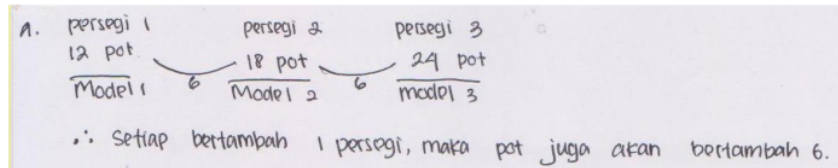 a. persegi 1 persegi 2 persegi 3
12 pot 18 pot 24 pot
6 6
Model 1 Model 2 model 3
∴ setiap bertambah 1 persegi, maka pot juga akan bertambah 6.